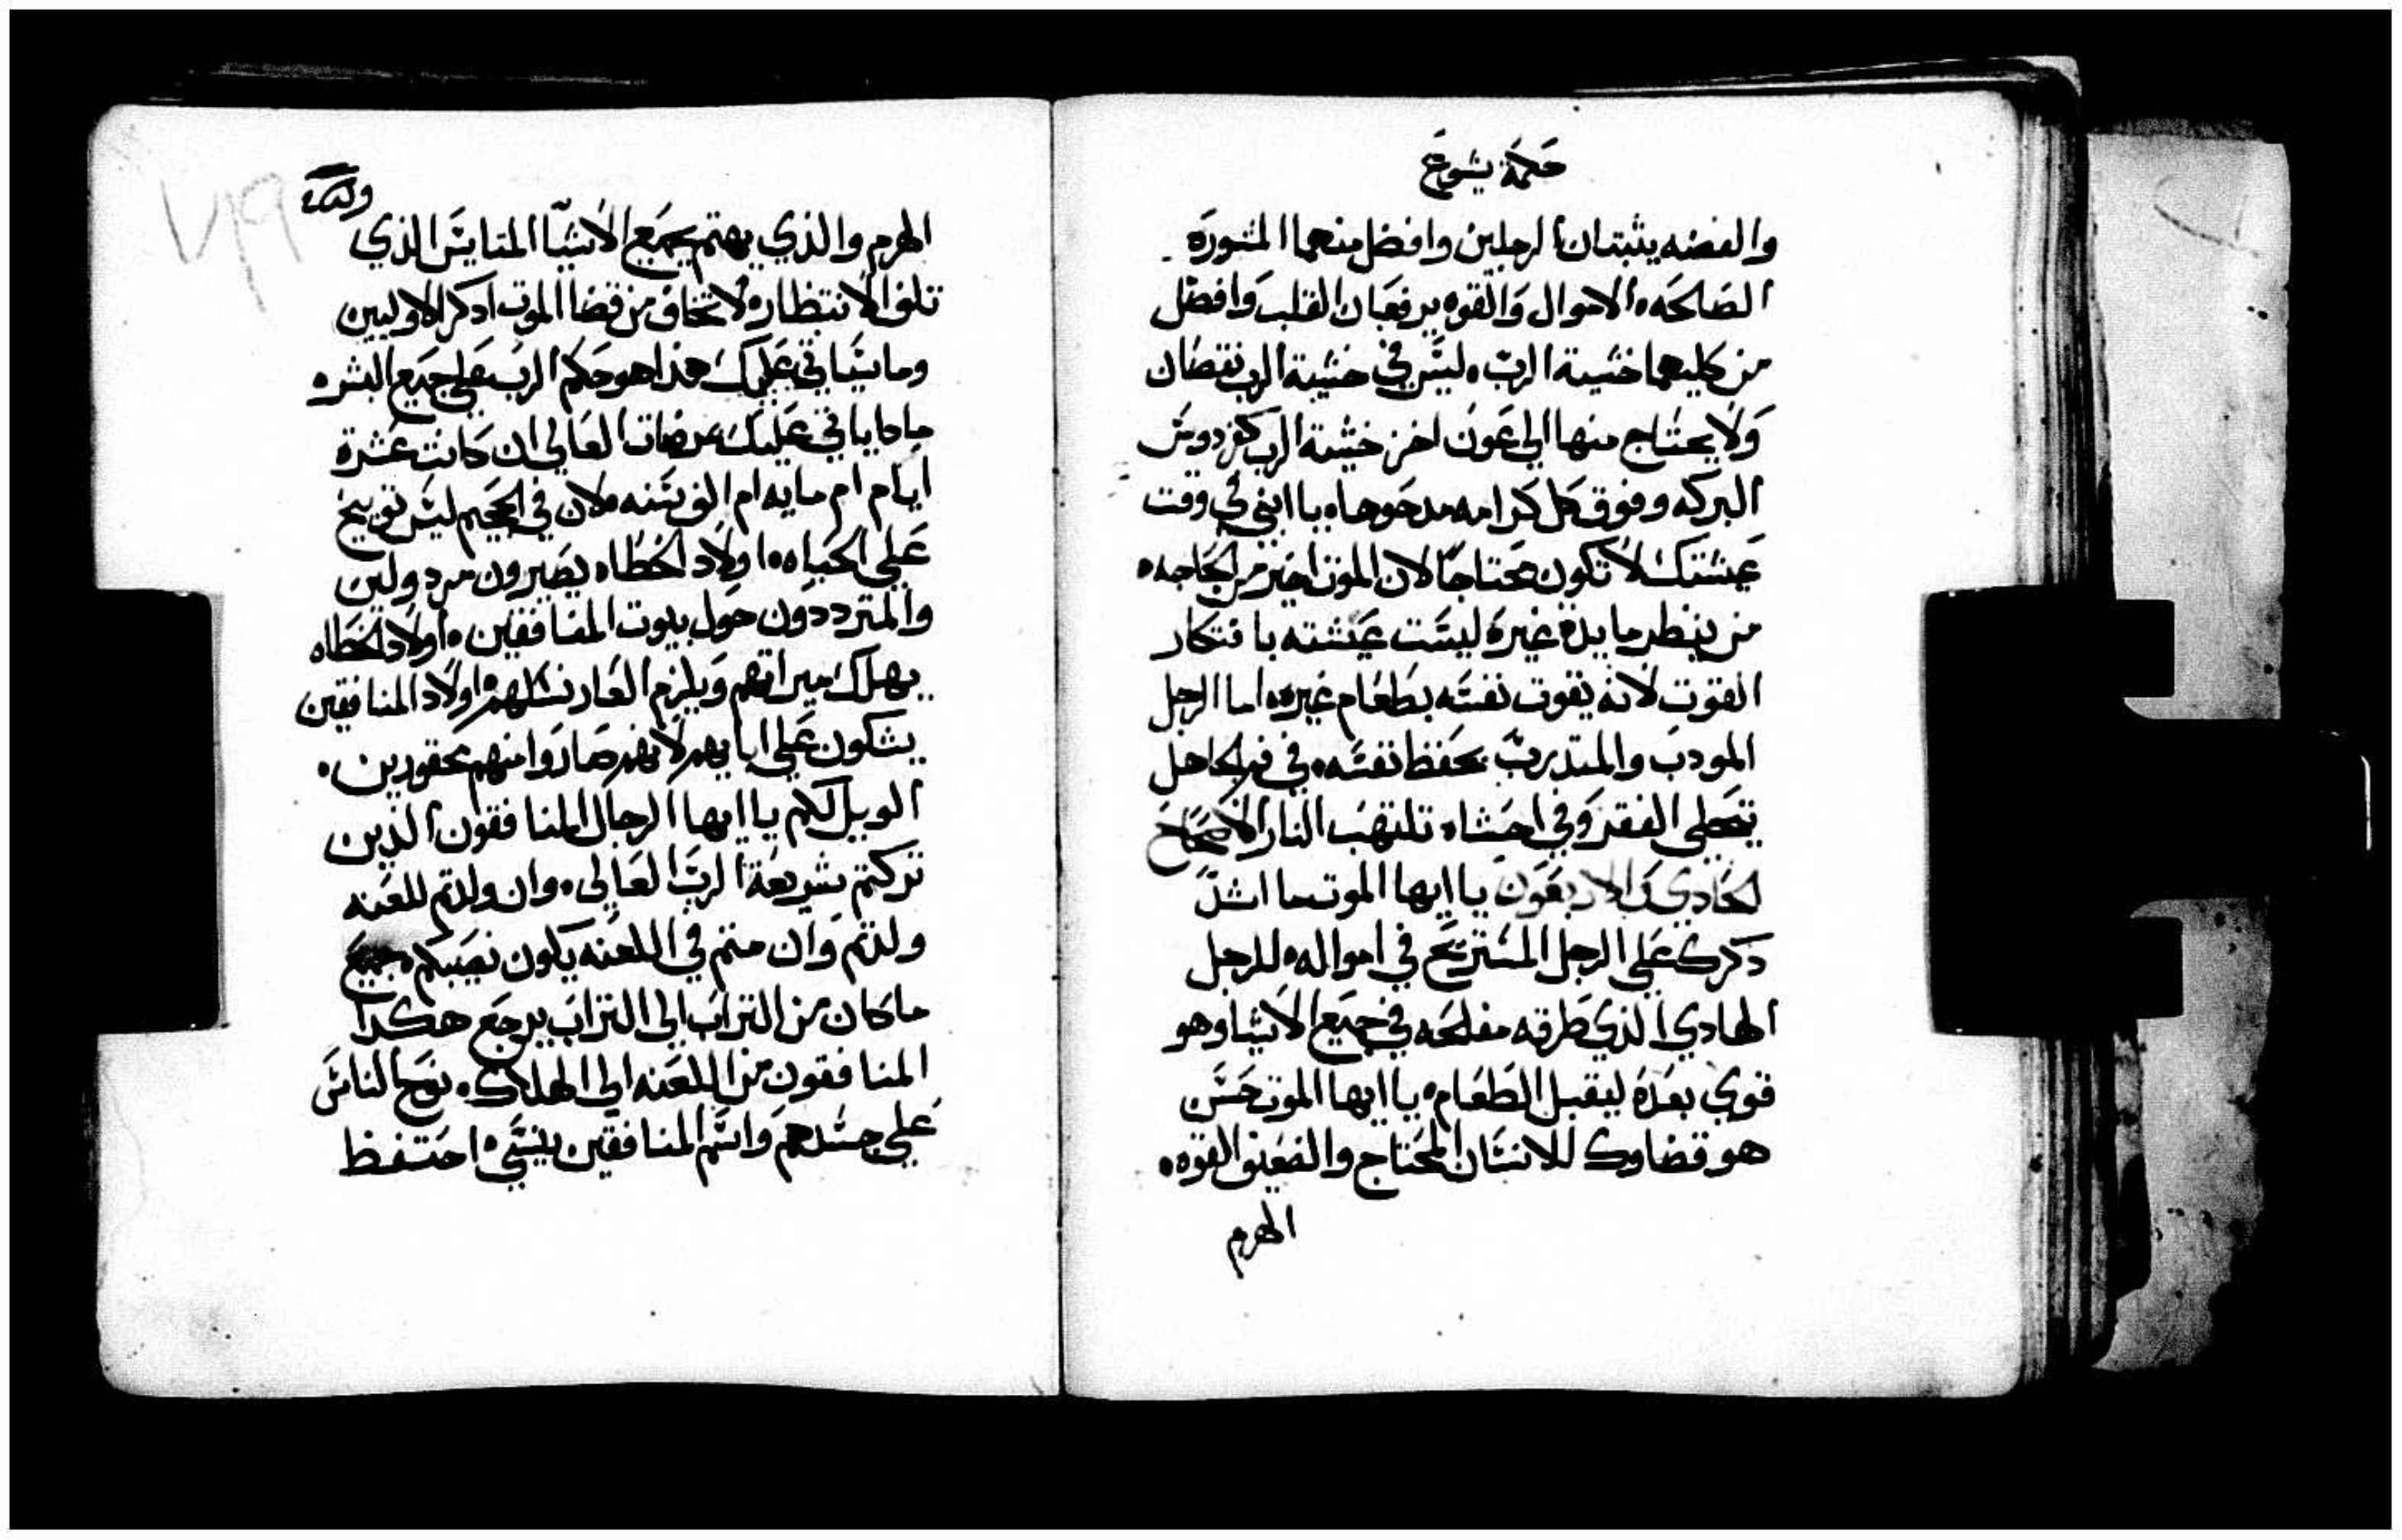 حكمة يشوع
والفضه يثبتان الرجلين وافضل منهما المشورة
الصالحه الاموال والقوه يرفعان القلب وافضل
من كليهما خشية الرب ليس في خشية الرب نقصان
ولا يحتاج منها الي عون اخر خشية الرب كفردوس
البركه وفوق كل كرامه مدحوها يا ابني في وقت
عيشتك لا تكون محتاجا لان الموت اخير من الحاجه
من ينظر مايدة غيره ليست عيشته بافتكار
القوت لانه يقوت نفسه بطعام غيره اما الرجل
المودب والمتدرب يحفظ نفسه في فم الجاهل
تحلي الفقر وفي احشاه تلتهب النار الاصحاح
الحادي والاربعون يا ايها الموت ما اشد
دكرك علي الرجل المستريح في امواله للرجل
الهادي الذي طرقه مفلحه في جميع الاشيا وهو
قوي بعده ليقبل الطعام يا ايها الموت حسن
هو قضاوك للانسان المحتاج والضعيف القوه
الهرم
الهرم والذي يهتم بجميع الاشيا المتايس الذي
تلف الانتظار لا تخاف من قضا الموت ادكر الاوليين
وما سياتي عليك هذا هو حكم الرب علي جميع البشر
مادا ياتي عليك مرضات العالي ان كانت عشرة
ايام ام مايه ام الف سنه لان في الجحيم ليس توبيخ
علي الحياه اولاد الخطاه يصيرون مردولين
والمترددون حول بيوت المنافقين اولاد الخطاه
يهلك ميراثهم ويلزم العار نسلهم اولاد المنافقين
يشكون علي ابايهم لانهم صاروا منهم محقورين
الويل لكم يا ايها الرجال المنافقون الذين
تركتم شريعة الرب العالي وان ولدتم للعنه
ولدتم وان متم في اللعنه يكون نصيبكم جميع
ما كان من التراب الي التراب يرجع هكدا
المنافقون من اللعنه الي الهلاك نوح الناس
علي جسدهم واسم المنافقين ينسي احتفظ